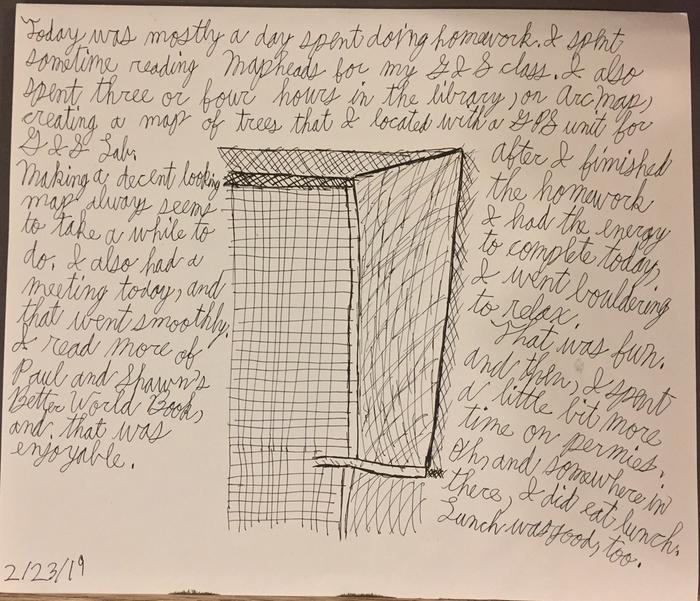 Today was mostly a day spent doing homework. I spent
sometime reading Mapheads for my GIS class. I also
spent three or four hours in the library, on ArcMap,
creating a map of trees that I located with a GPS unit for
GIS Lab.
Making a decent looking
map always seems
to take a while to
do. I also had a
meeting today, and
that went smoothly.
I read more of
Paul and Shawn's
Better World Book,
and that was
enjoyable.
After I finished
the homework
I had the energy
to complete today,
I went bouldering
to relax.
That was fun.
and then, I spent
a little bit more
time on permies.
Oh, and somewhere in
there, I did eat lunch.
Lunch was good, too.
2/23/19